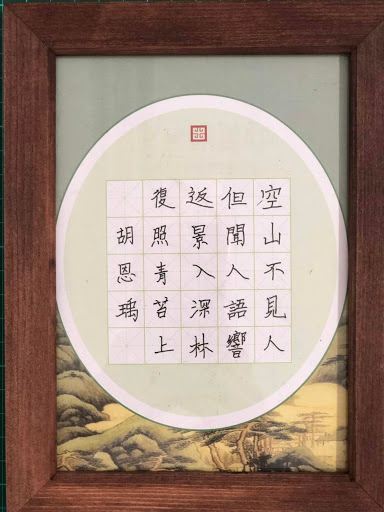 空山不見人
但聞人語響
返景入深林
復照青苔上
胡恩瑀